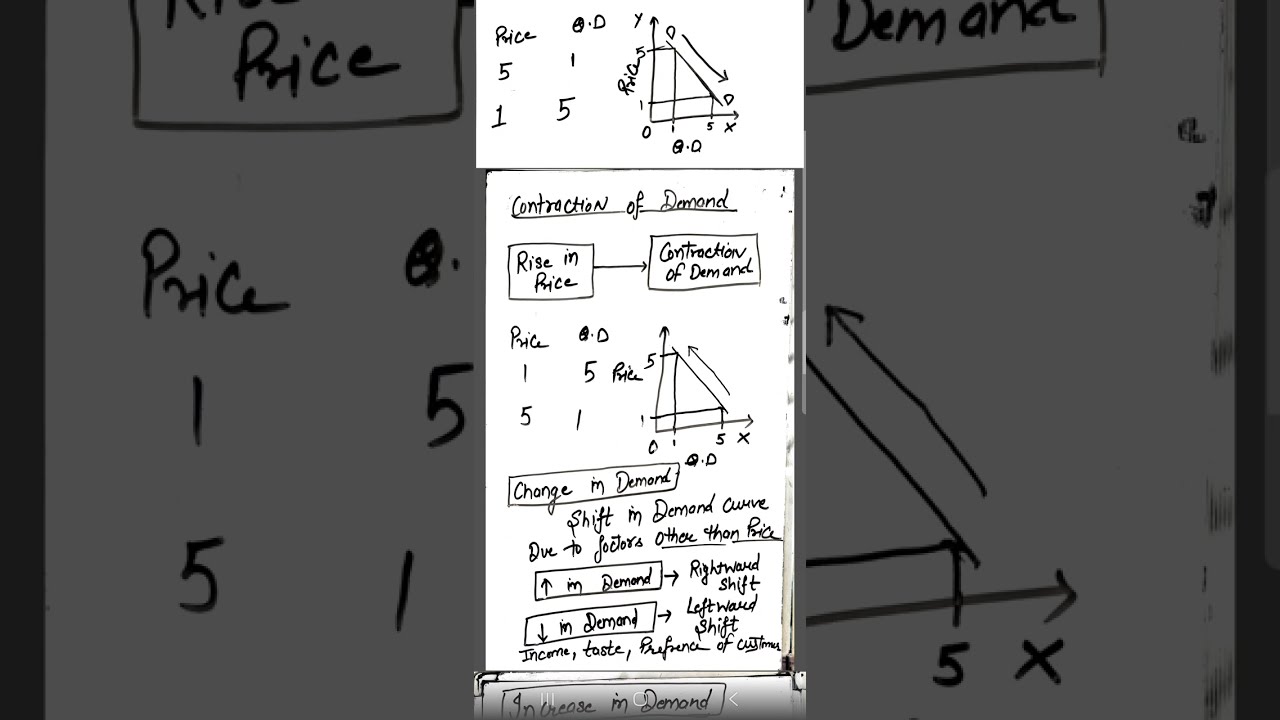 Price Q.D
5 1
1 5
Y
D
5
Price
1
D
O 1 5 X
Q.D
Contraction of Demand
Rise in Price
Contraction of Demand
Price Q.D
1 5
5 1
5
Price
1
O 1 5 X
Q.D
Change in Demand
Shift in Demand curve
Due to factors other than Price
↑ in Demand → Rightward shift
↓ in Demand → Leftward shift
Income, taste, Prefrence of customer
Increase in Demand
Price
Demand
Price Q.
1 5
5 1
5 X